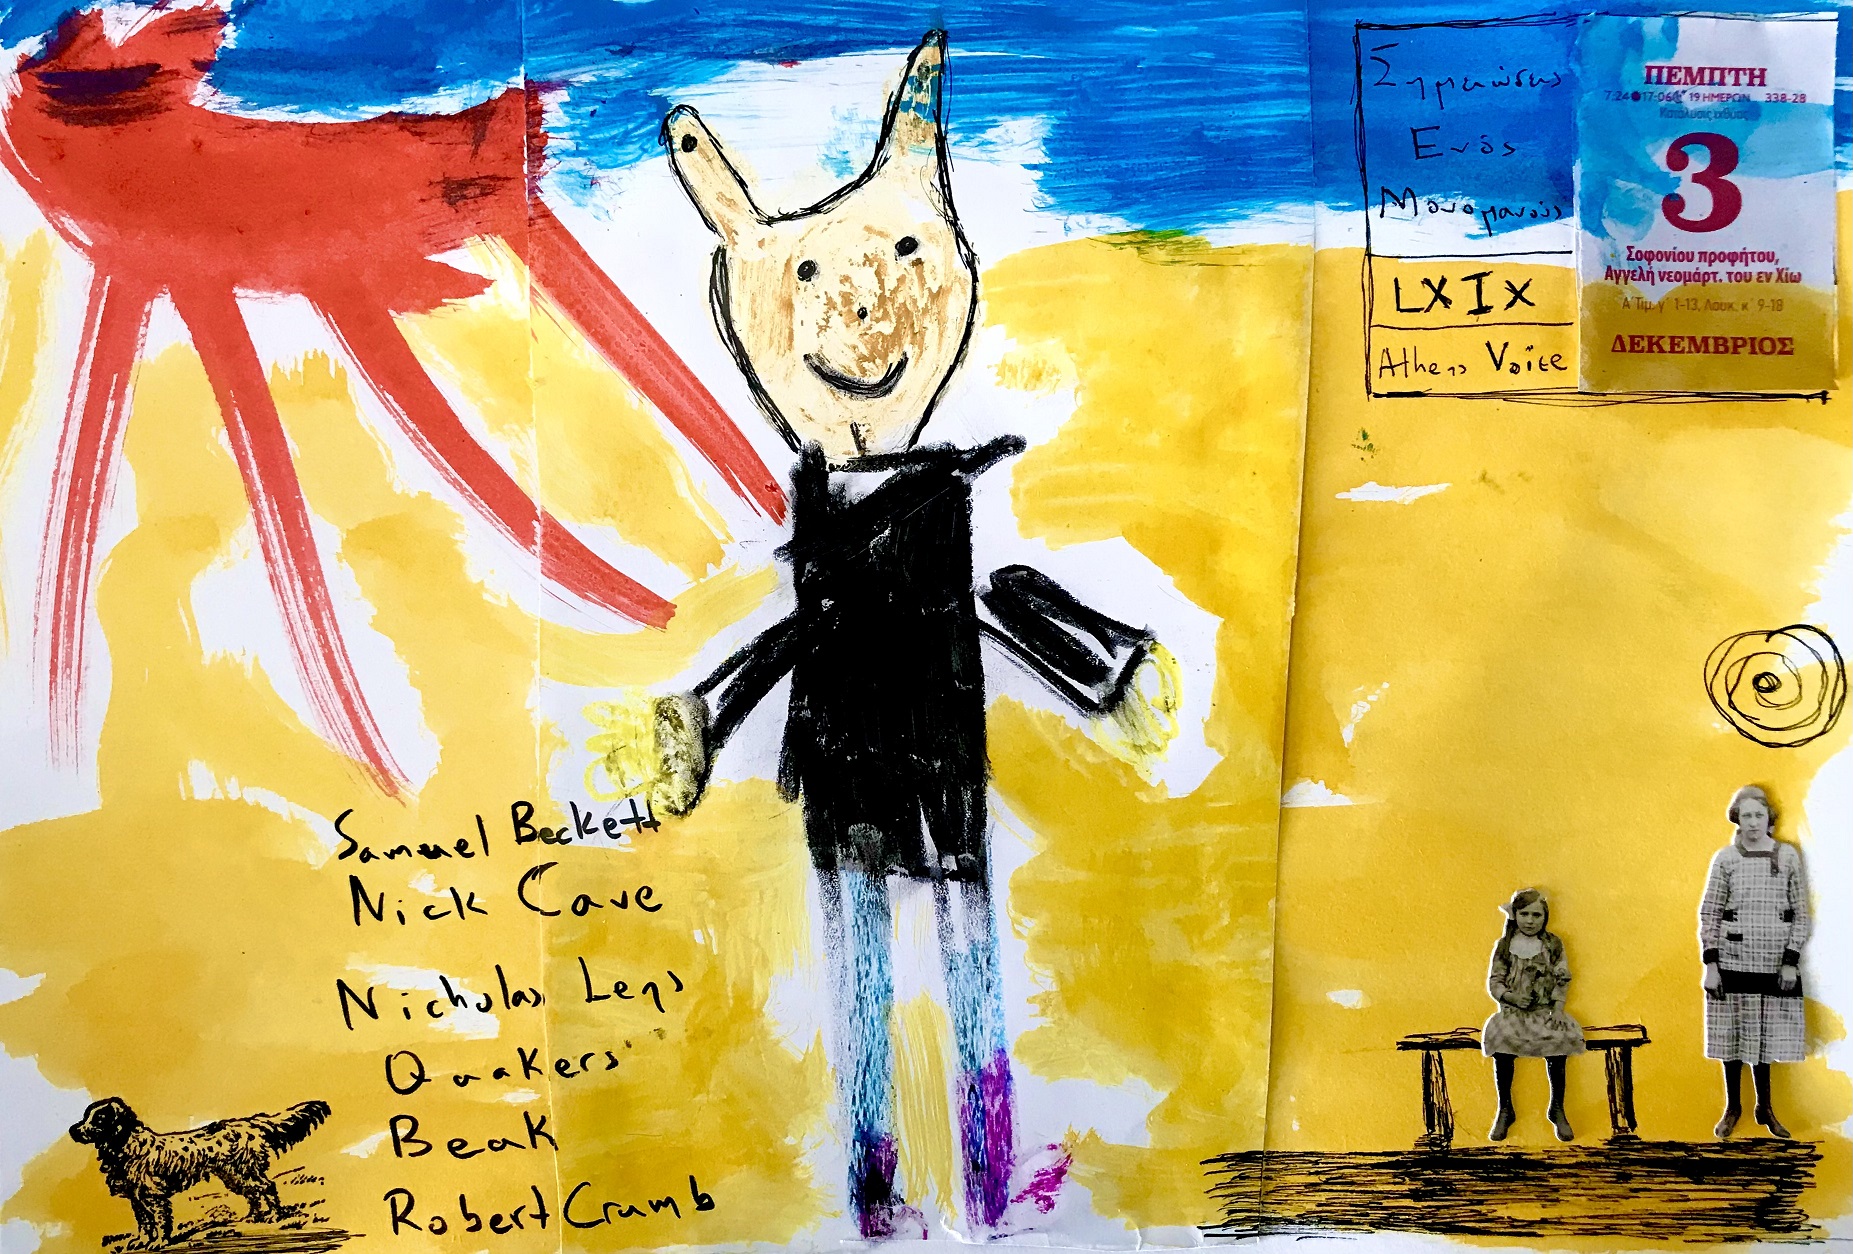 Σημειώσεις
Ενός
Μονομανούς
LXIX
Athens Voice
ΠΕΜΠΤΗ
7:24 17-06 19 ΗΜΕΡΩΝ 338-28
Κατάλυσις ιχθύος
3
Σοφονίου προφήτου,
Αγγελή νεομάρτ. του εν Χίω
Α΄ Τιμ. γ΄ 1-13, Λουκ. κ΄ 9-18
ΔΕΚΕΜΒΡΙΟΣ
Samuel Beckett
Nick Cave
Nicholas Lens
Quakers
Beak
Robert Crumb